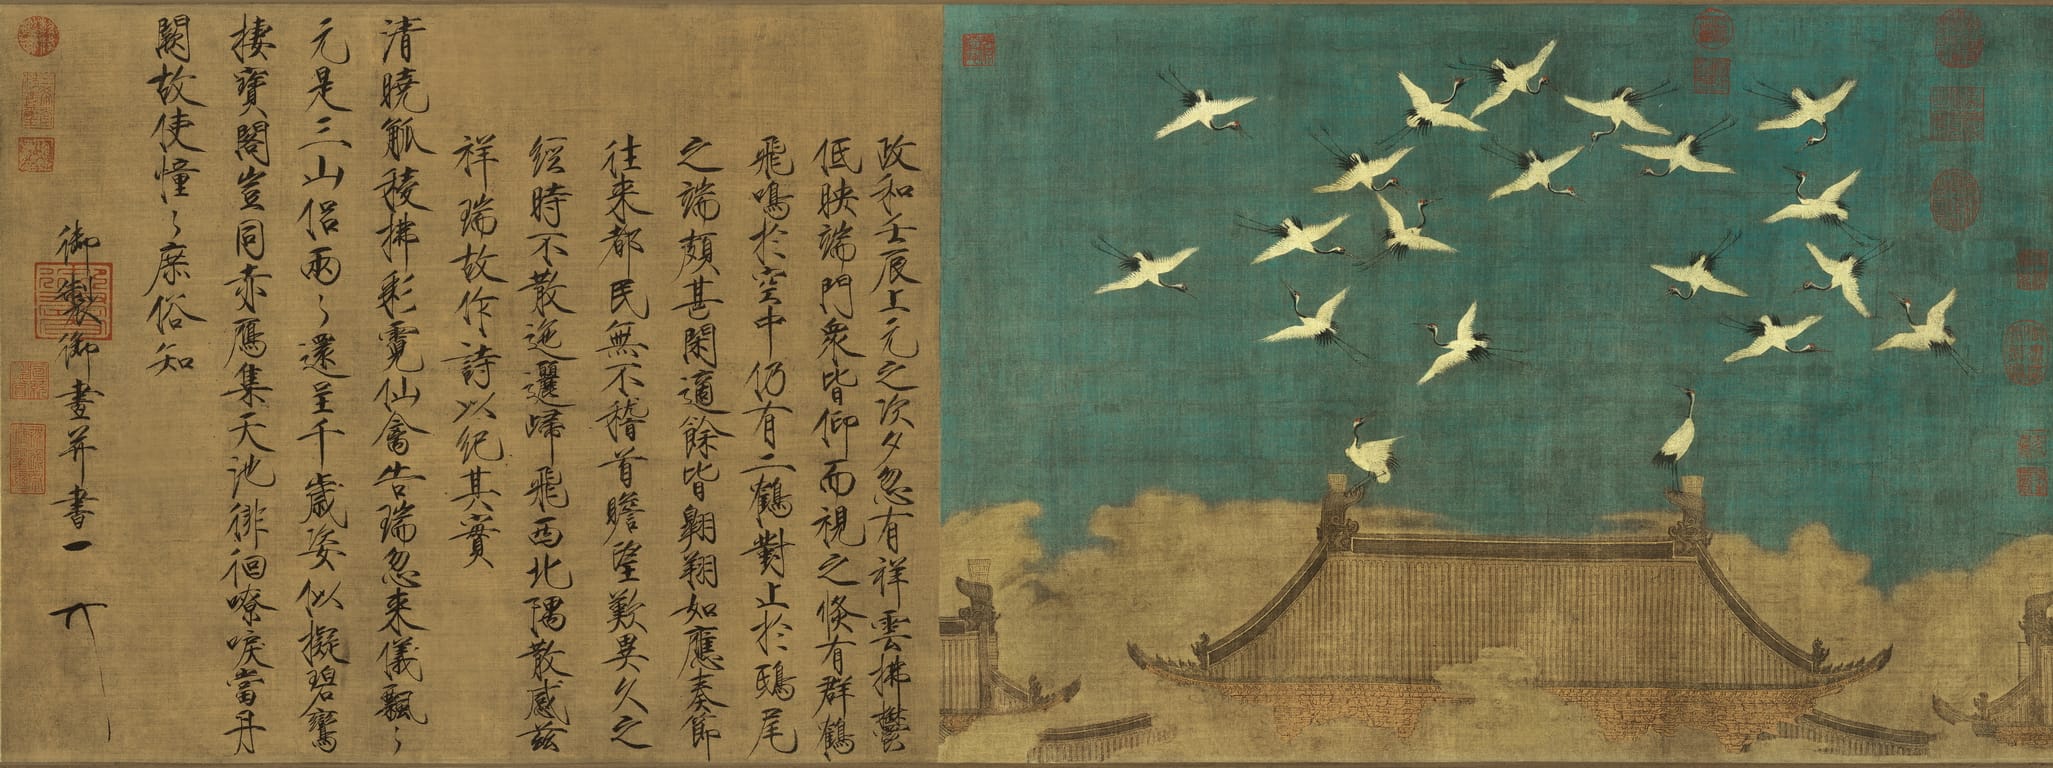 政和壬辰上元之次夕忽有祥雲拂鬱
低映端門衆皆仰而視之倐有群鶴
飛鳴於空中仍有二鶴對止於鴟尾
之端頗甚閑適餘皆翱翔如應奏節
往来都民無不稽首瞻望歎異久之
經時不散迤邐歸飛西北隅散感兹
祥瑞故作詩以紀其實
清曉觚稜拂彩霓仙禽告瑞忽来儀飄〻
元是三山侣兩〻還呈千歲姿似擬碧鸞
棲寳閣豈同赤鴈集天池徘徊嘹唳當丹
闕故使憧〻庶俗知
御製御畫并書